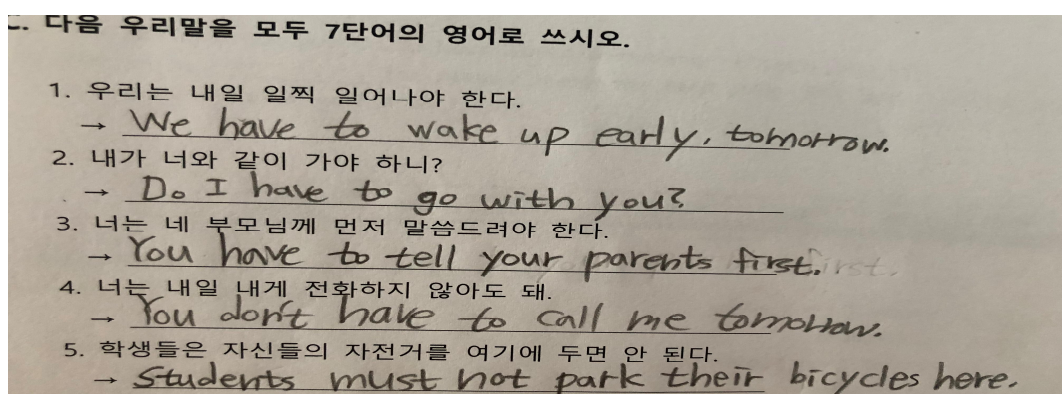 C. 다음 우리말을 모두 7단어의 영어로 쓰시오.
1. 우리는 내일 일찍 일어나야 한다.
→ We have to wake up early, tomorrow.
2. 내가 너와 같이 가야 하니?
→ Do I have to go with you?
3. 너는 네 부모님께 먼저 말씀드려야 한다.
→ You have to tell your parents first.
4. 너는 내일 내게 전화하지 않아도 돼.
→ You don't have to call me tomorrow.
5. 학생들은 자신들의 자전거를 여기에 두면 안 된다.
→ Students must not park their bicycles here.